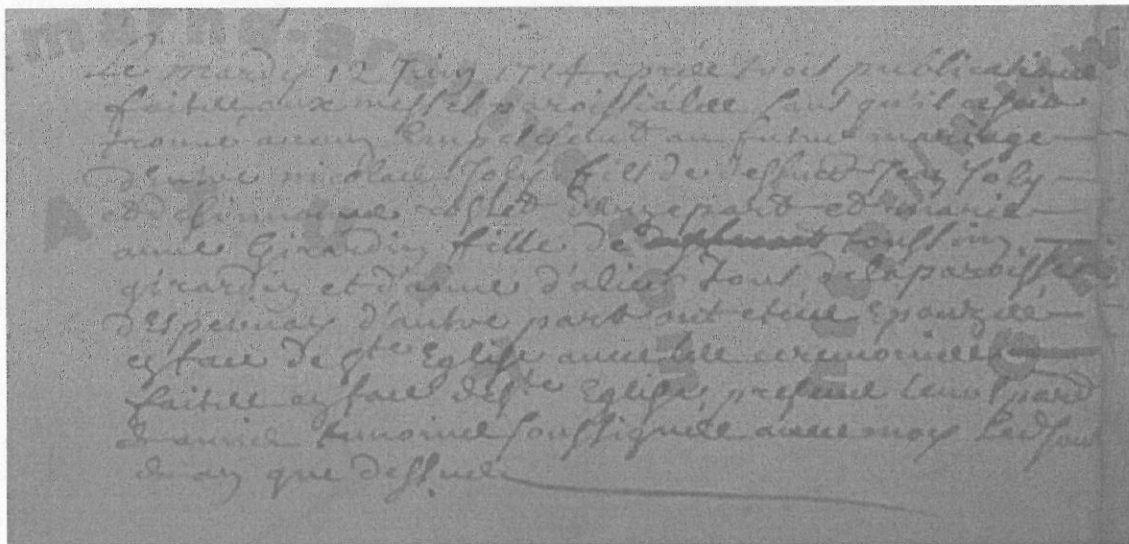 Le mardy 12 Juin 1714 apres trois publications
faittes aux messes paroissialles sans qu'il se soit
trouvé aucun empeschement au futur mariage
d'entre nicolas Joly fils de deffunct Jean Joly
et d'une part et marie
anne Girardin fille de toussin
girardin et d'anne d'alier tous de la paroisse
d'Espernay d'autre part ont estées Epouzées
en face de Ste Eglise avec les ceremonies
faittes en face de Ste Eglise, presence leurs parens
& amis temoins soussignées avec moy Led jour
& an que dessus